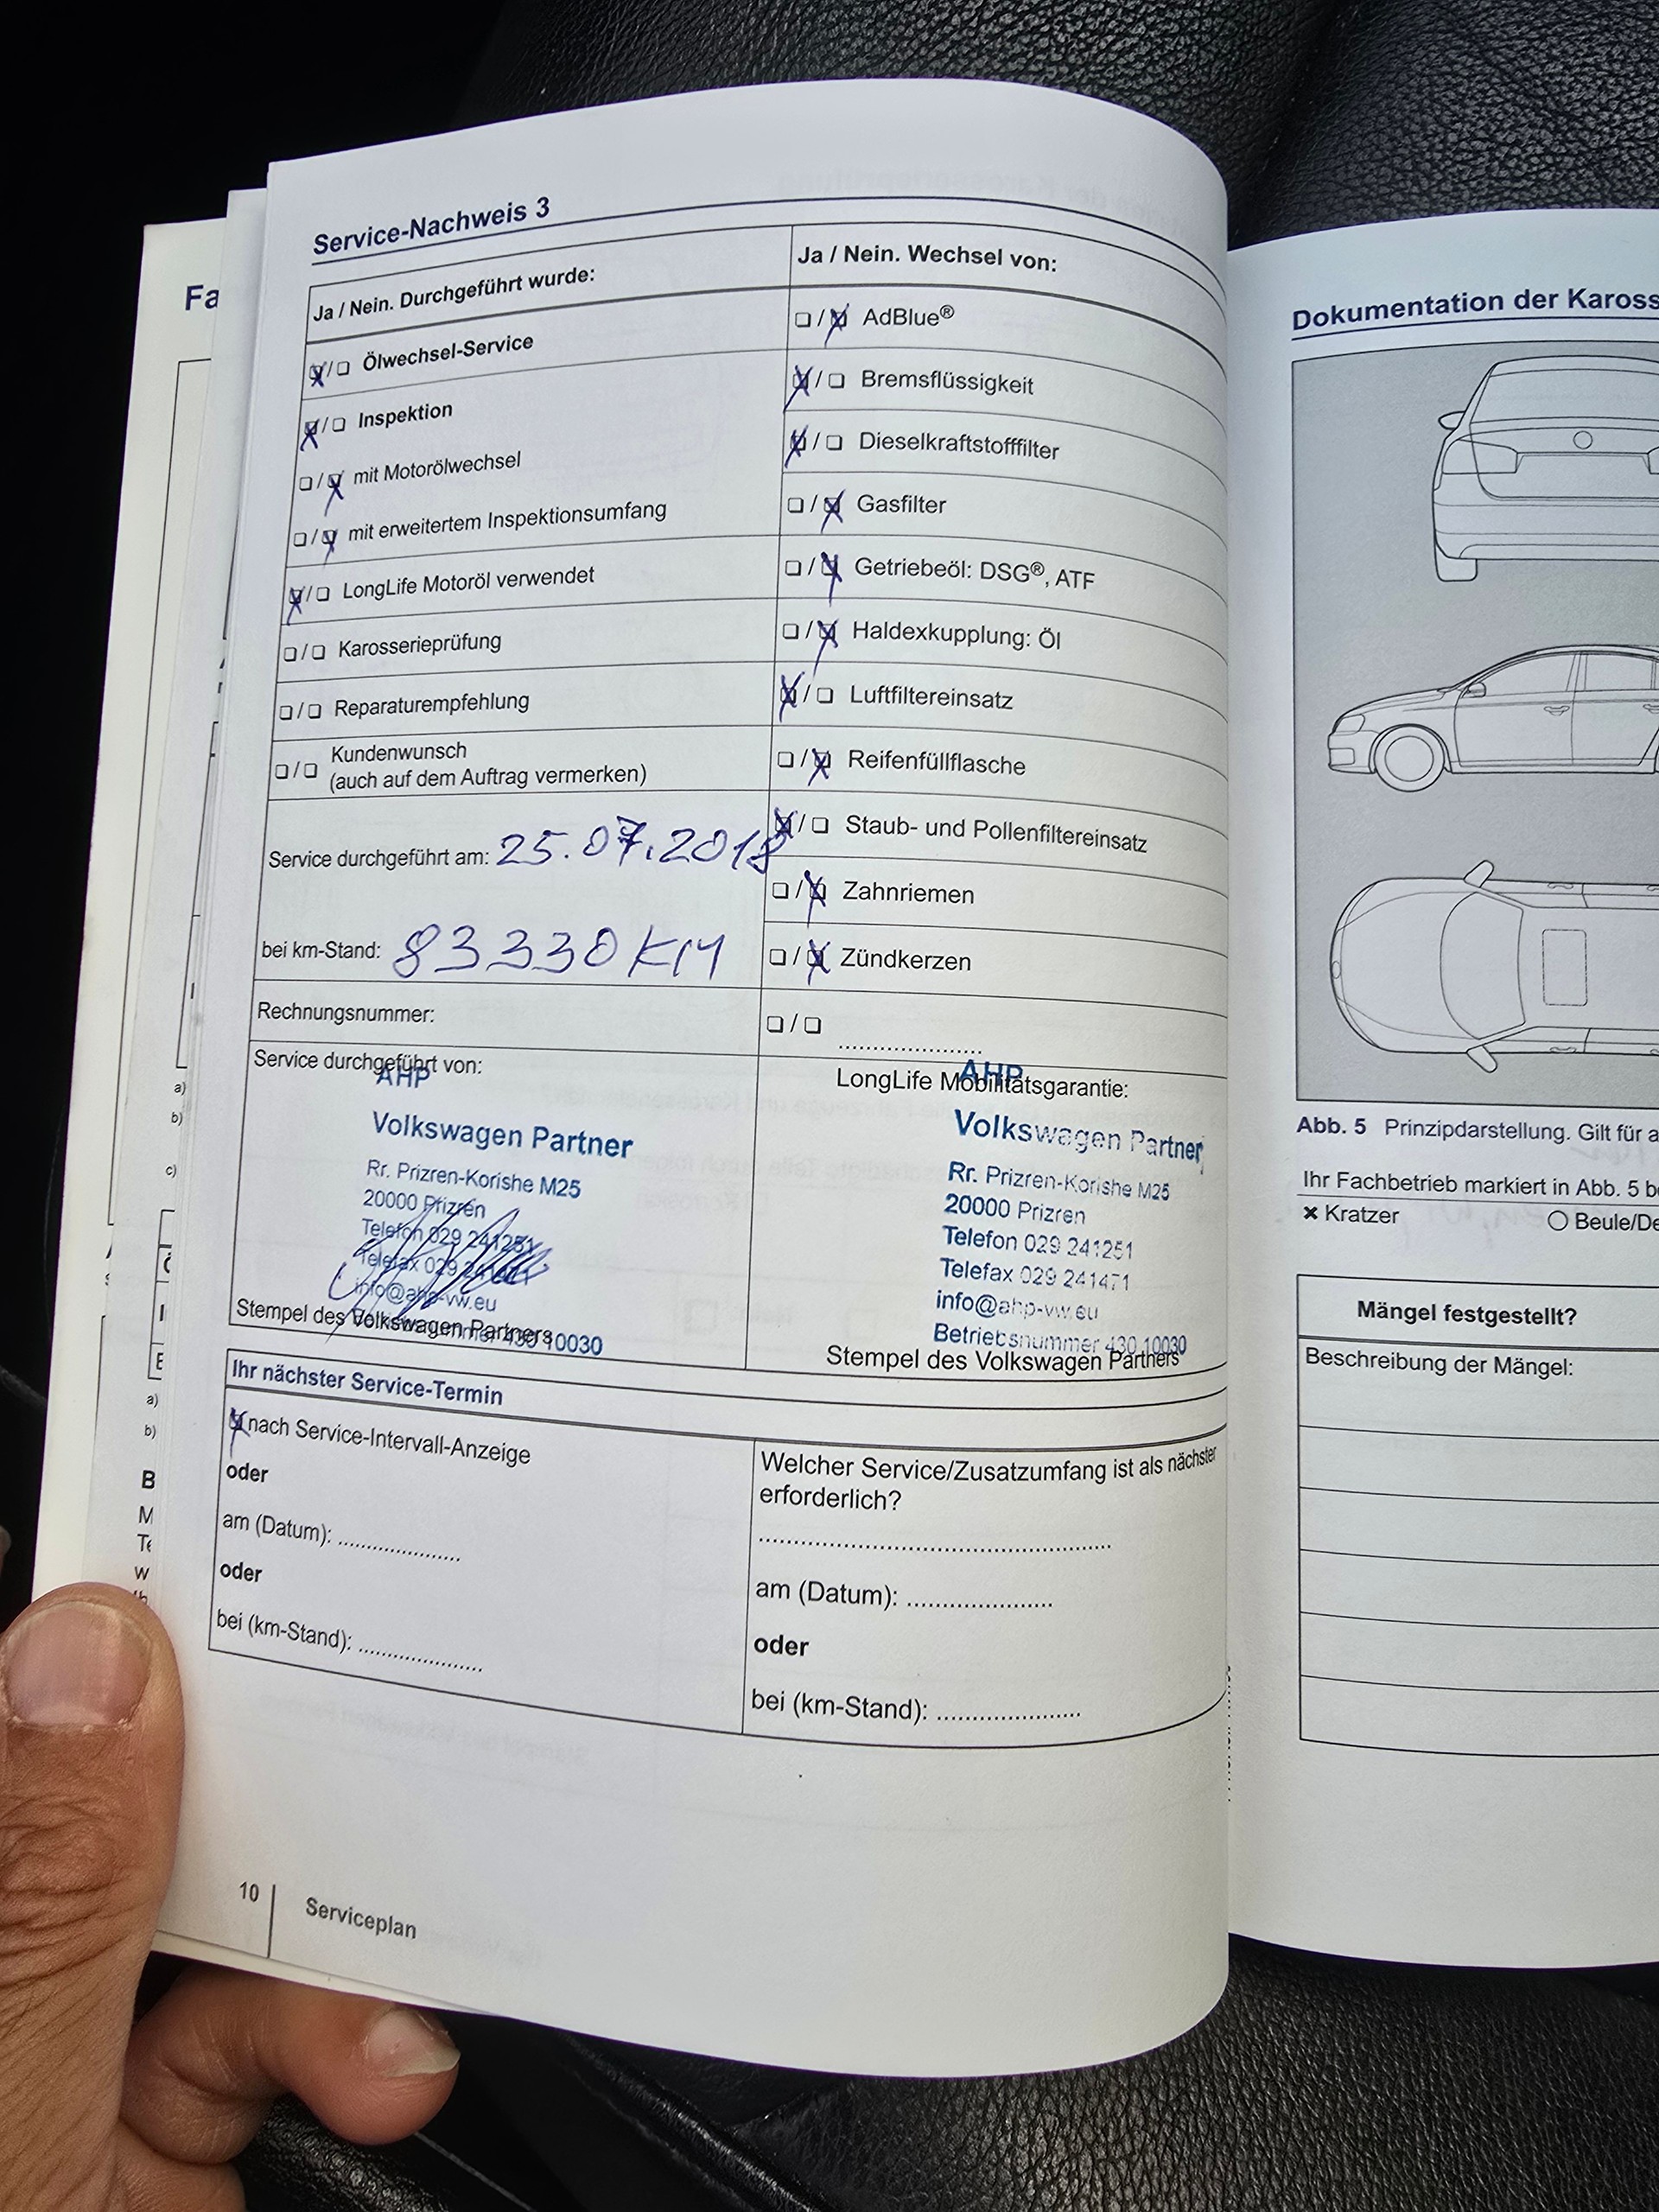 Fa
Service-Nachweis 3
Ja / Nein. Durchgeführt wurde:
Ölwechsel-Service
Inspektion
mit Motorölwechsel
mit erweitertem Inspektionsumfang
LongLife Motoröl verwendet
Karosserieprüfung
Reparaturempfehlung
Kundenwunsch
(auch auf dem Auftrag vermerken)
Service durchgeführt am: 25.07.2018
bei km-Stand: 83330 KM
Rechnungsnummer:
Ja / Nein. Wechsel von:
AdBlue®
Bremsflüssigkeit
Dieselkraftstofffilter
Gasfilter
Getriebeöl: DSG®, ATF
Haldexkupplung: Öl
Luftfiltereinsatz
Reifenfüllflasche
Staub- und Pollenfiltereinsatz
Zahnriemen
Zündkerzen
....................
Service durchgeführt von:
AHP
Volkswagen Partner
Rr. Prizren-Korishe M25
20000 Prizren
Telefon 029 241251
Telefax 029 241471
info@ahp-vw.eu
Betriebsnummer 430 10030
Stempel des Volkswagen Partners
LongLife Mobilitätsgarantie:
AHP
Volkswagen Partner
Rr. Prizren-Korishe M25
20000 Prizren
Telefon 029 241251
Telefax 029 241471
info@ahp-vw.eu
Betriebsnummer 430 10030
Stempel des Volkswagen Partners
Ihr nächster Service-Termin
nach Service-Intervall-Anzeige
oder
am (Datum): ....................
oder
bei (km-Stand): ....................
Welcher Service/Zusatzumfang ist als nächster
erforderlich?
..................................................
am (Datum): ....................
oder
bei (km-Stand): ....................
10
Serviceplan
a)
b)
c)
a)
b)
B
M
w
Dokumentation der Kaross
Abb. 5 Prinzipdarstellung. Gilt für a
Ihr Fachbetrieb markiert in Abb. 5 b
Kratzer
Beule/De
Mängel festgestellt?
Beschreibung der Mängel: